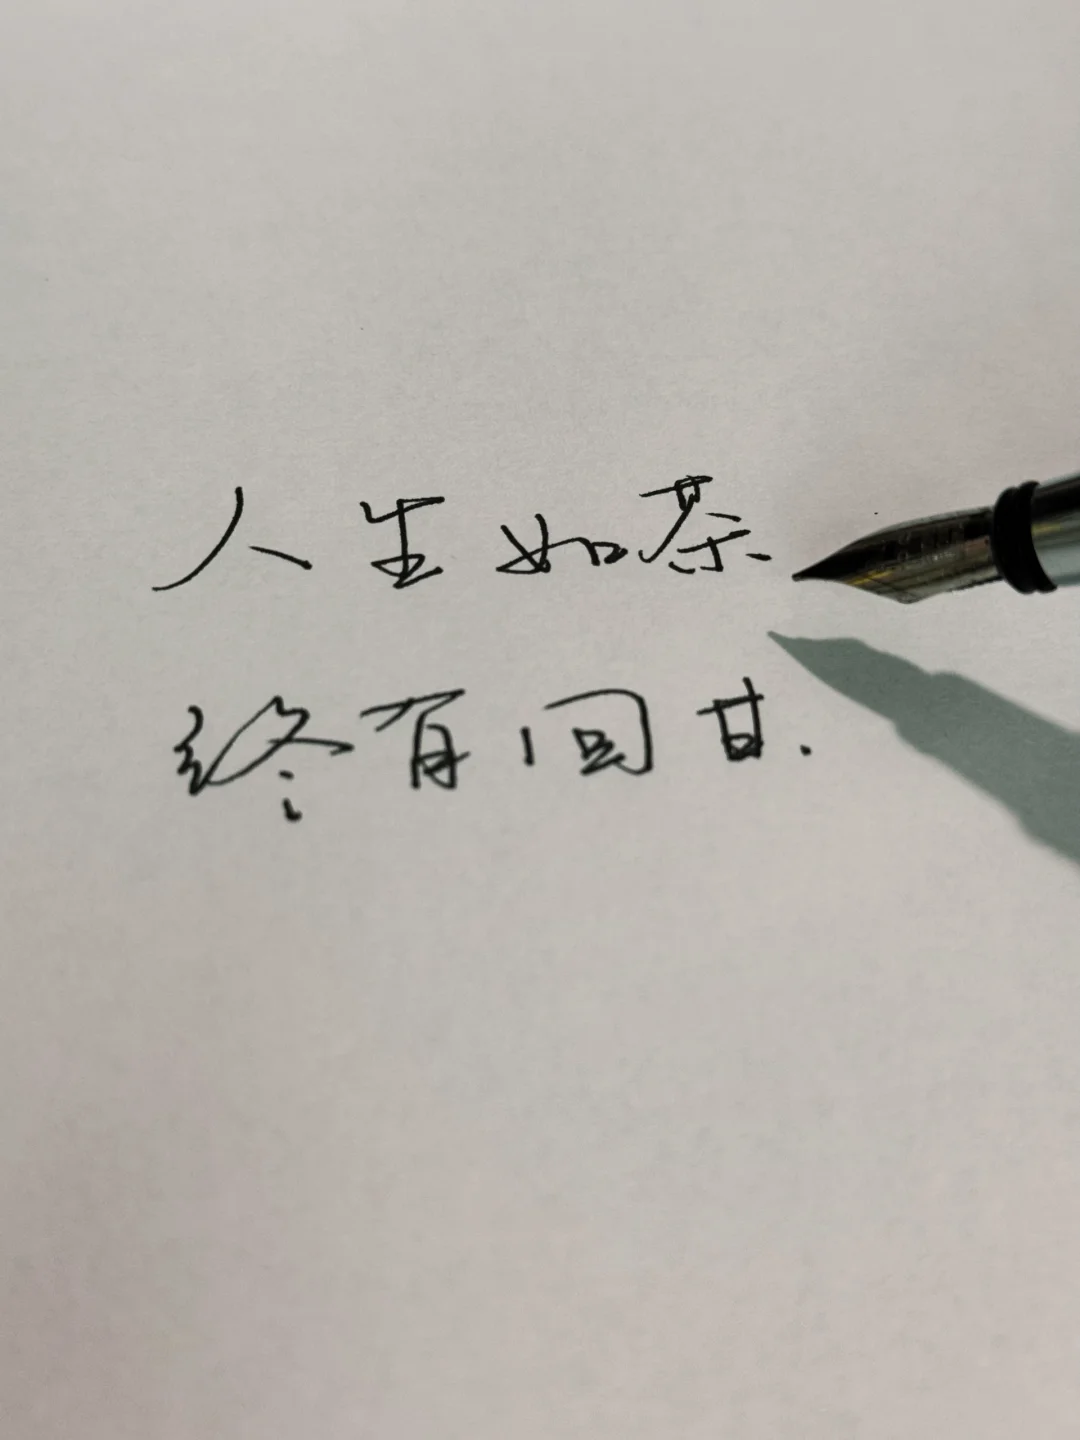 人生如茶
终有回甘.